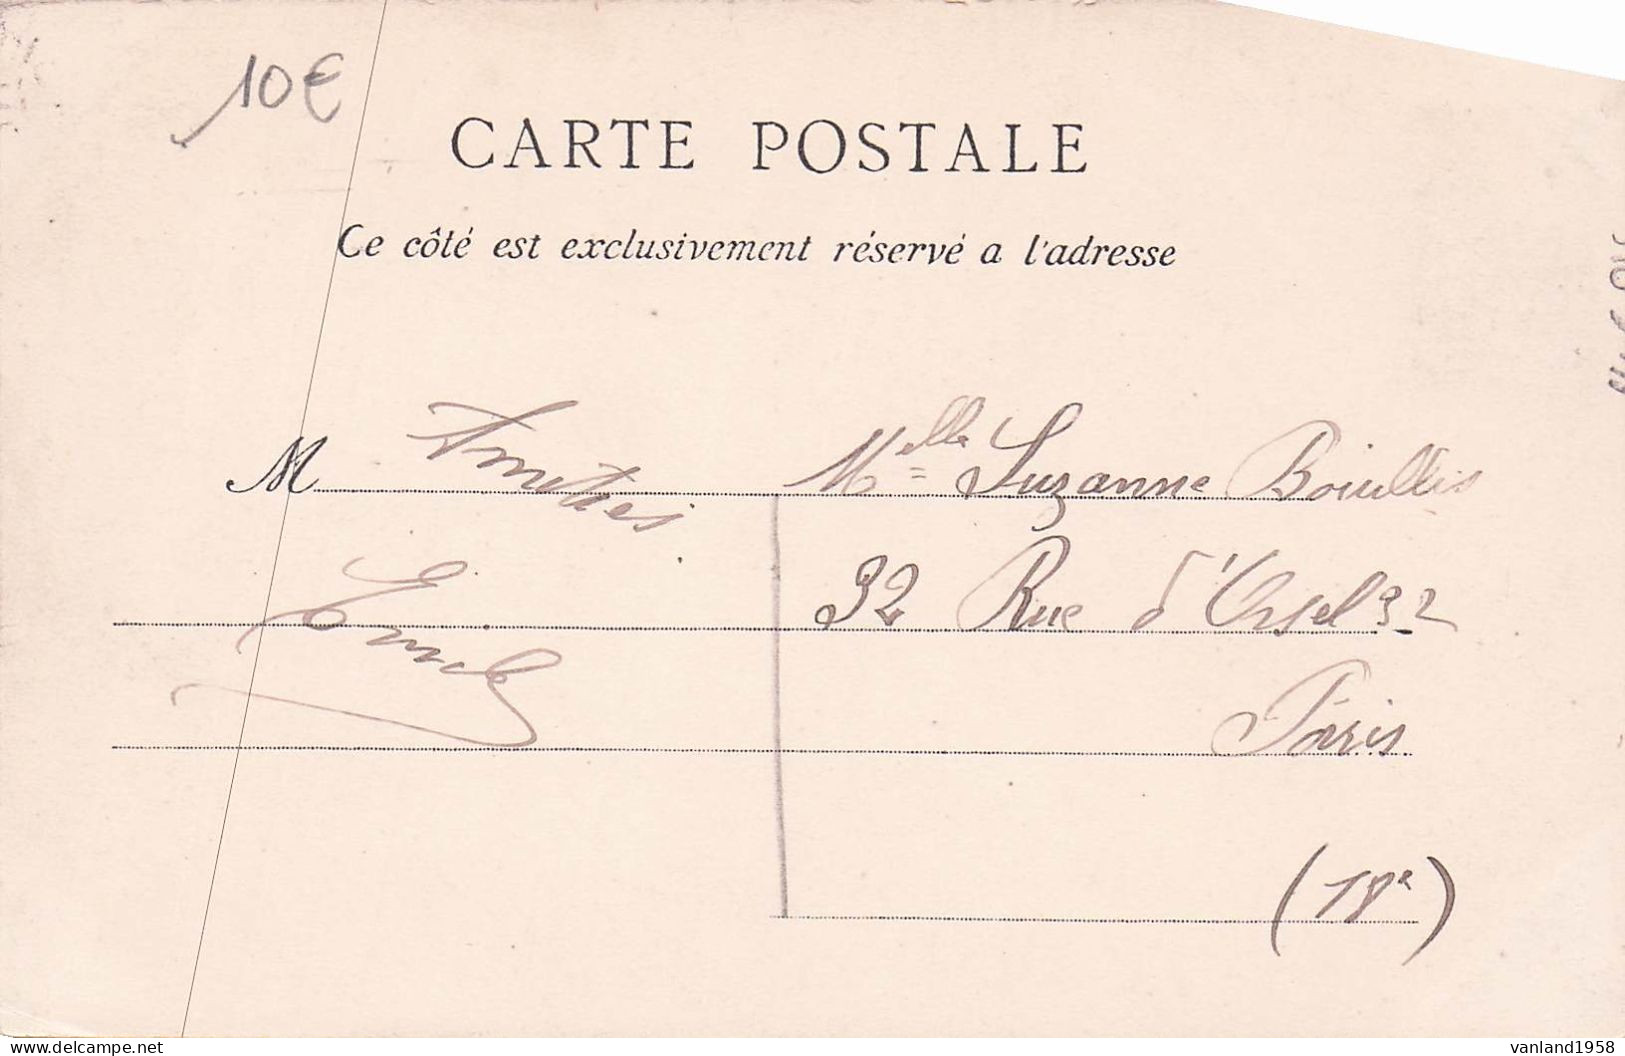 10€
CARTE POSTALE
Ce côté est exclusivement réservé a l'adresse
M
Amitiés
Emile
Melle Suzanne Bouillis
32 Rue d'Orsel 32
Paris
(18e)
delcampe.net
vanland1958